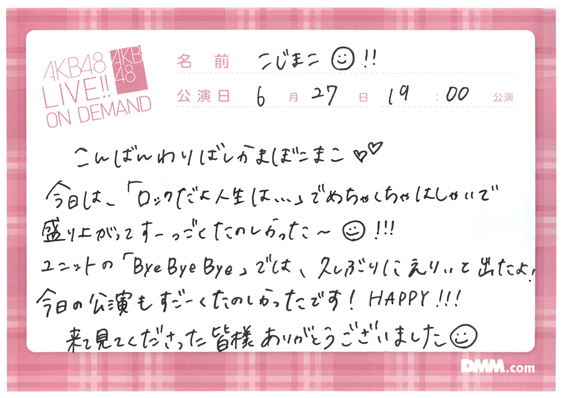 AKB48
LIVE!!
ON DEMAND
AKB
48
名前 こじまこ!!
公演日 6月27日 19:00公演
こんばんわりばしかまぼこまこ♡♡
今日は、「ロックだよ人生は…」でめちゃくちゃはしゃいで
盛り上がってすーっごくたのしかった〜!!!
ユニットの「Bye Bye Bye」では、久しぶりにえりぃと出たよ!
今日の公演もすごーくたのしかったです! HAPPY!!!
来て見てくださった皆様ありがとうございました
DMM.com